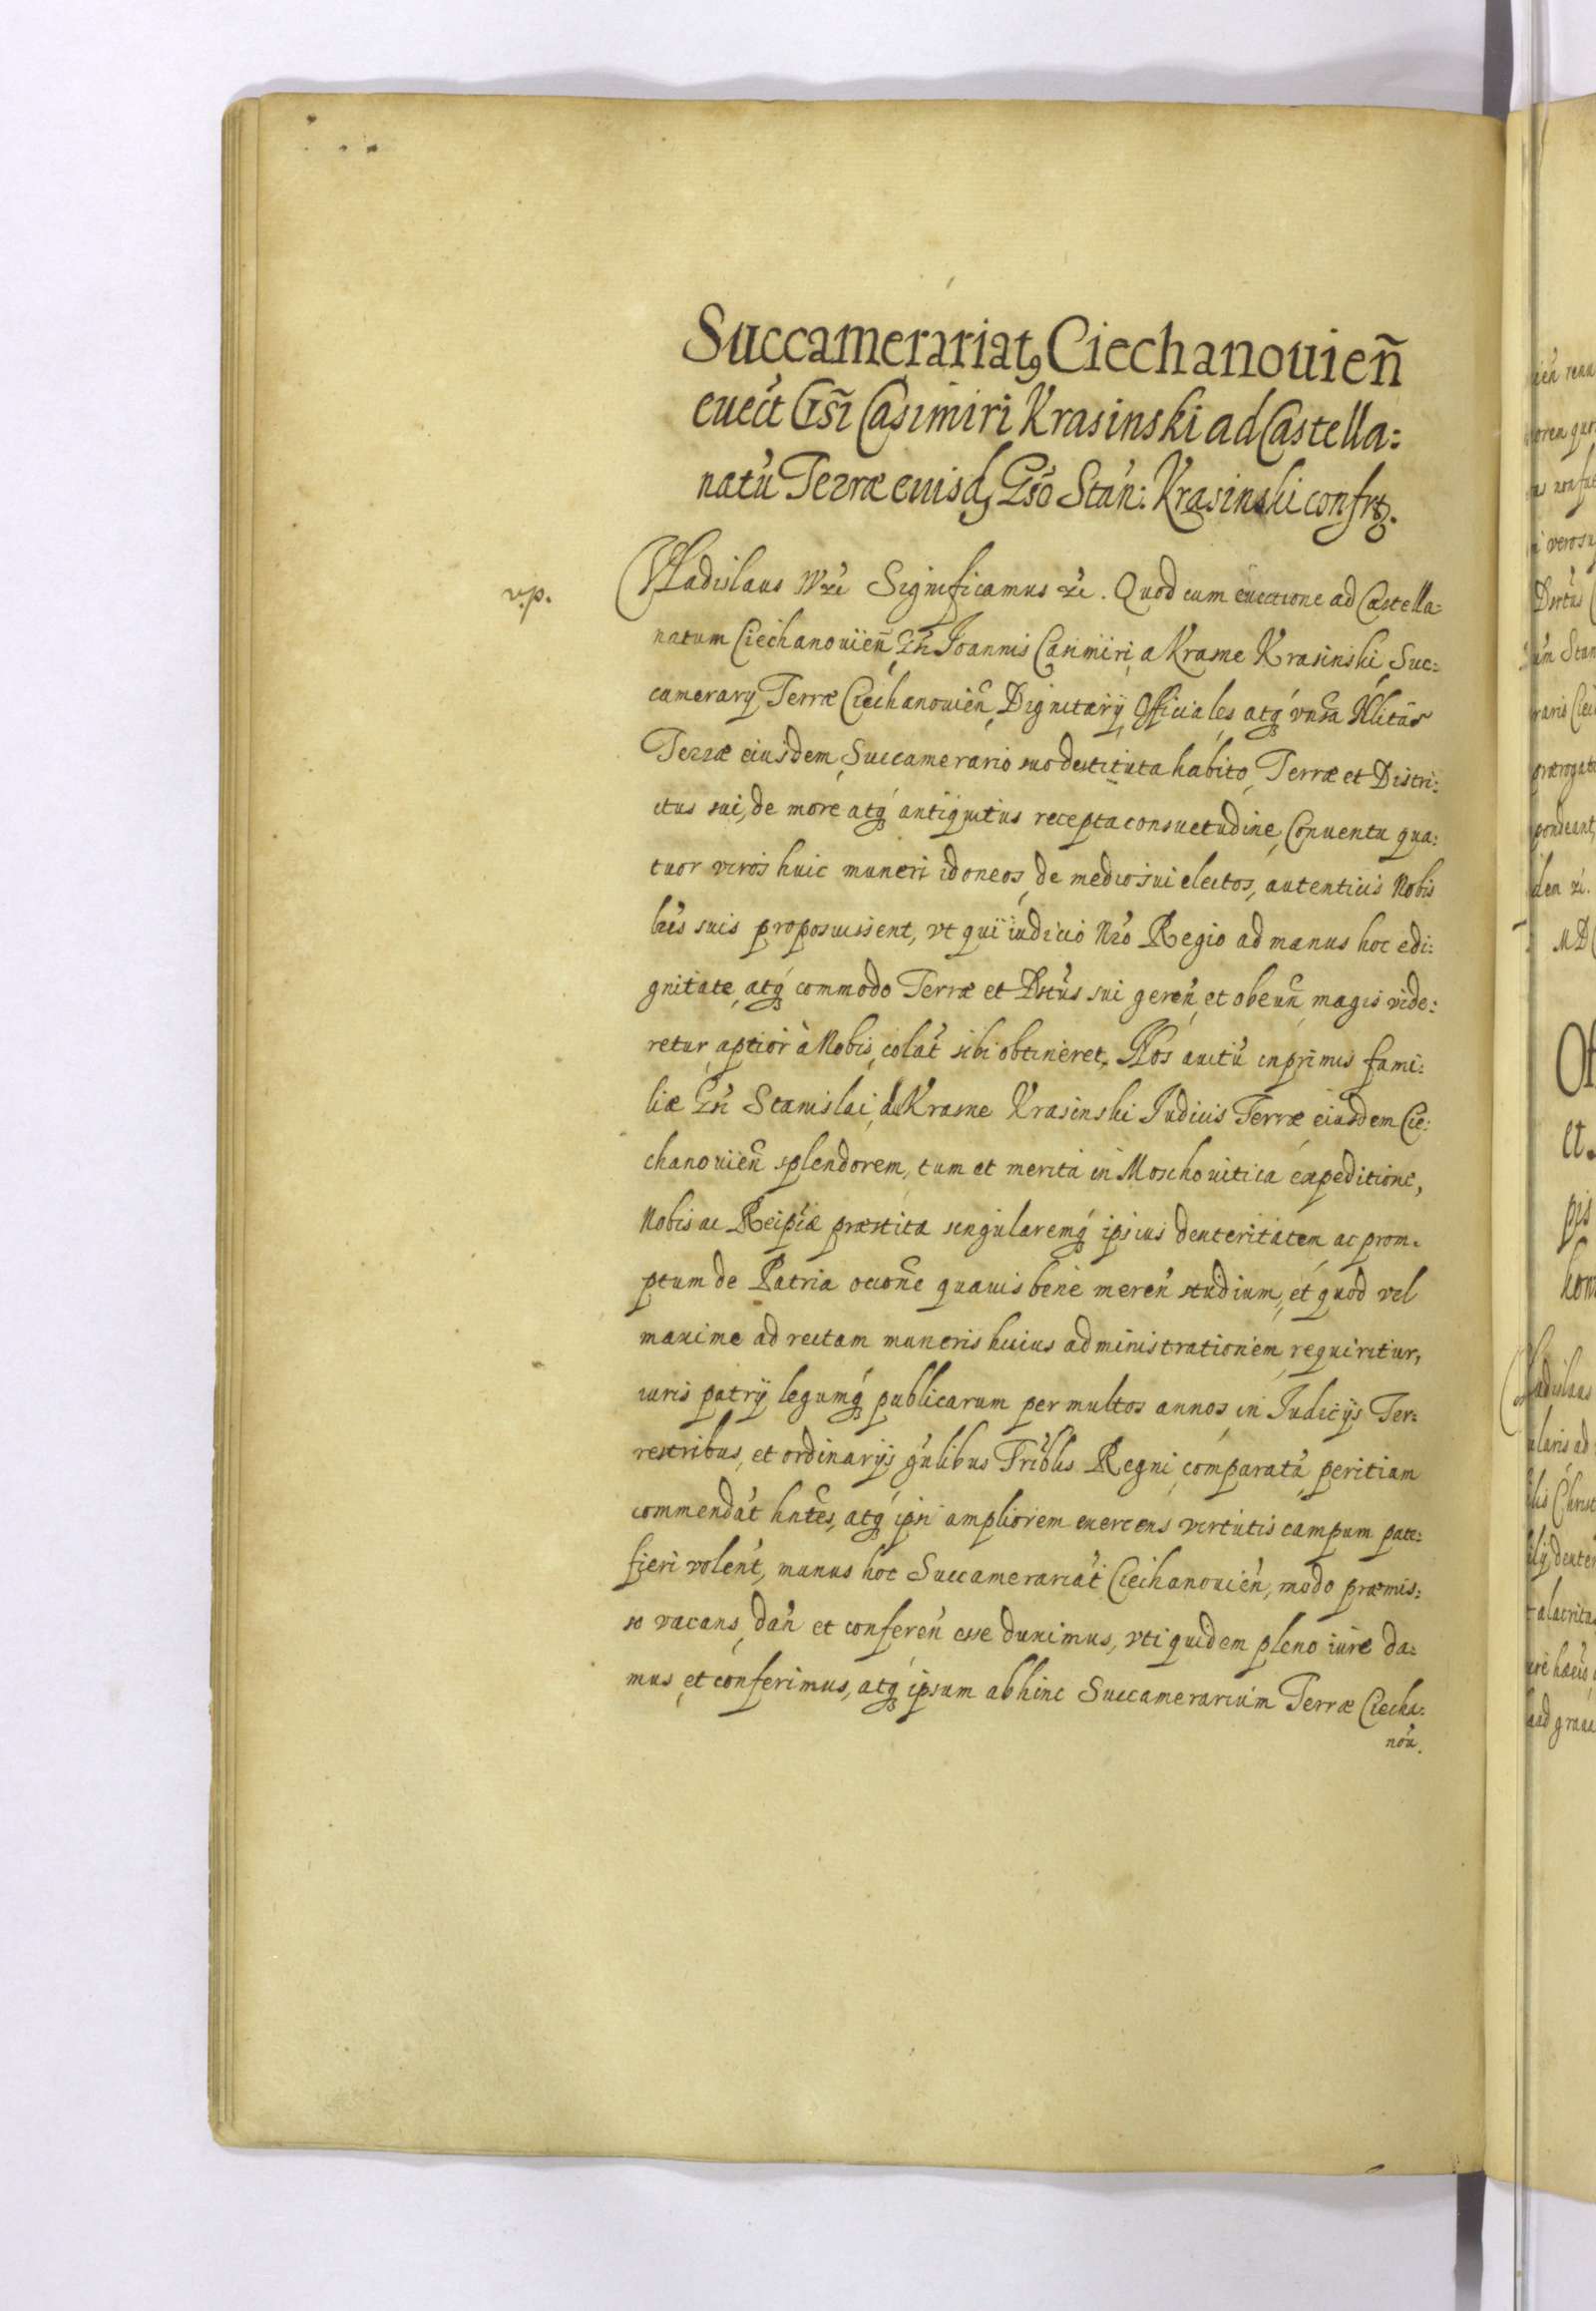 Succamerariatꝯ Ciechanouien̄
euect Gsi Casimiri Krasinski ad Castella:
natu Terræ euisdꝫ Gso Stan: Krasinski confrꝫ.
Vladislaus IV ꝛc Significamus ꝛc. Quod cum euectione ad Castella:
natum Ciechanouien̄ Gsi Joannis Casimiri a Krasne Krasinski Suc:
camerarij Terræ Ciechanouien̄, Dignitarij Officiales atqꝫ vnsa Nlitas
Terræ eiusdem Succamerario suo destituta habito, Terræ et Distri:
ctus sui, de more atqꝫ antiquitus recepta consuetudine, Conuentu qua:
tuor viros huic muneri idoneos, de medio sui electos, autenticis Nobis
lres suis proposuissent, vt qui iudicio Nro Regio ad manus hoc edi:
gnitate, atqꝫ commodo Terræ et Dctus sui geren̄, et obeun̄ magis vide:
retur aptior à Nobis, colat sibi obtineret. Nos auitu inprimis fami:
liæ Gsi Stanislai, a Krasne Krasinski Judicis Terræ eiusdem Cie:
chanouien̄ splendorem, tum et merita in Moschouitica expeditione,
Nobis ac Reipiæ præstita singularemqꝫ ipsius dexteritatem, ac prom:
ptum de Patria occone quauis bene meren̄ studium, et quod vel
maxime ad rectam muneris huius administrationem requiritur,
iuris patrij legumqꝫ publicarum per multos annos in Judicijs Ter:
restribus, et ordinarijs gnlibus Triblis Regni comparata peritiam
commendat hntes, atqꝫ ipsi ampliorem exercens virtutis campum pate:
fieri volent, munus hoc Succamerariat Ciechanouien̄, modo præmis:
so vacans, dan̄ et conferen̄ esse duximus, vti quidem pleno iure da:
mus et conferimus, atqꝫ ipsum abhinc Succamerarium Terræ Ciecha:
nou.